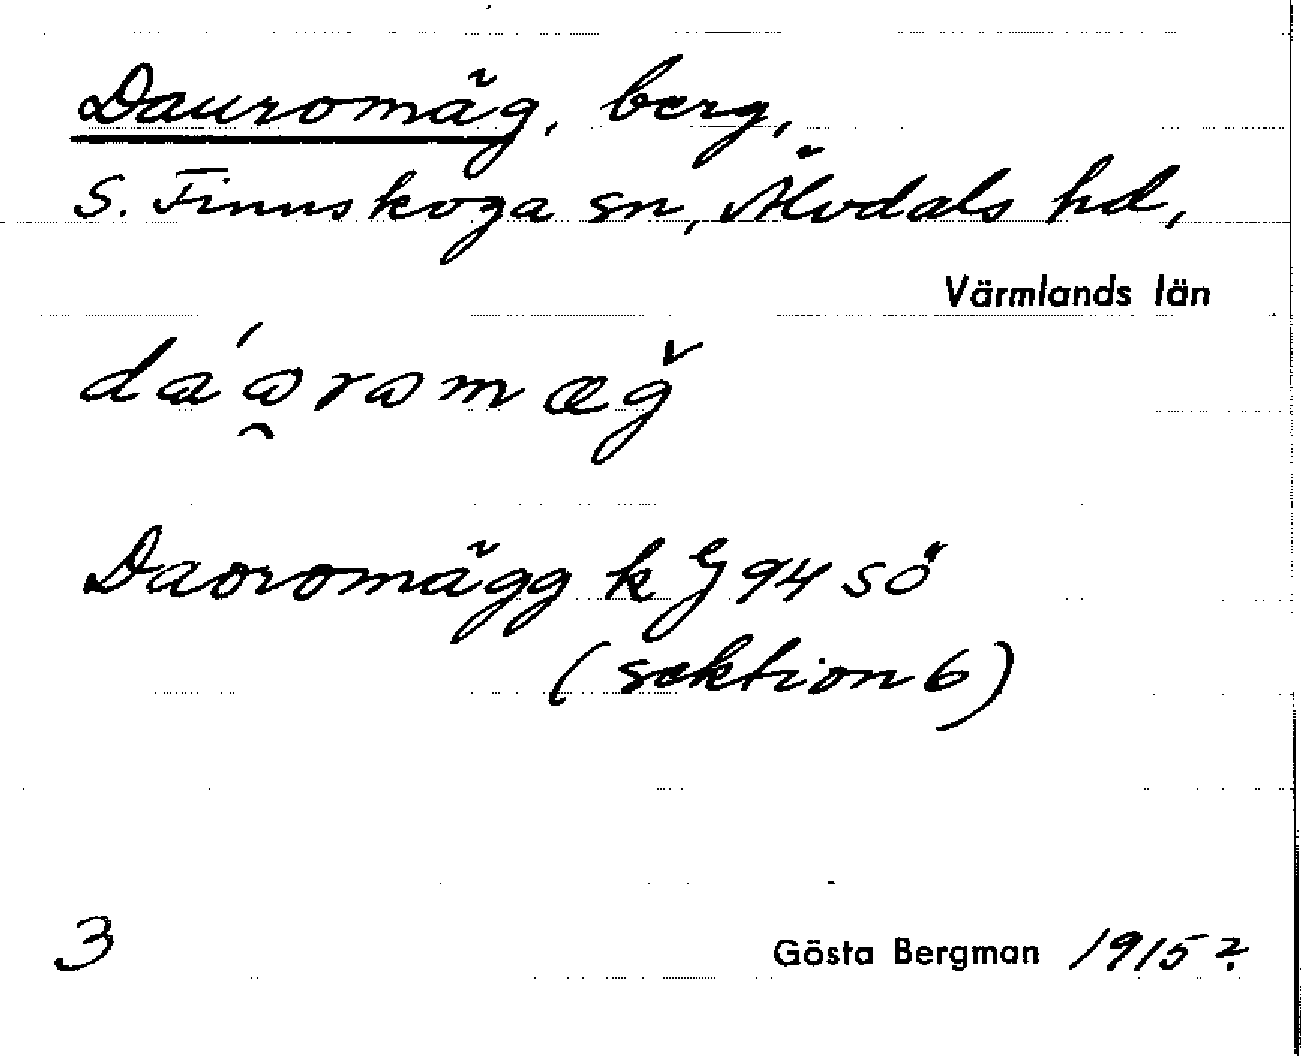 Dauromäg, berg,
S. Finnskoga sn, Älvdals hd,
Värmlands län
Daoromägg k 94 sö
(sektion 6)
3 Gösta Bergman 1915?